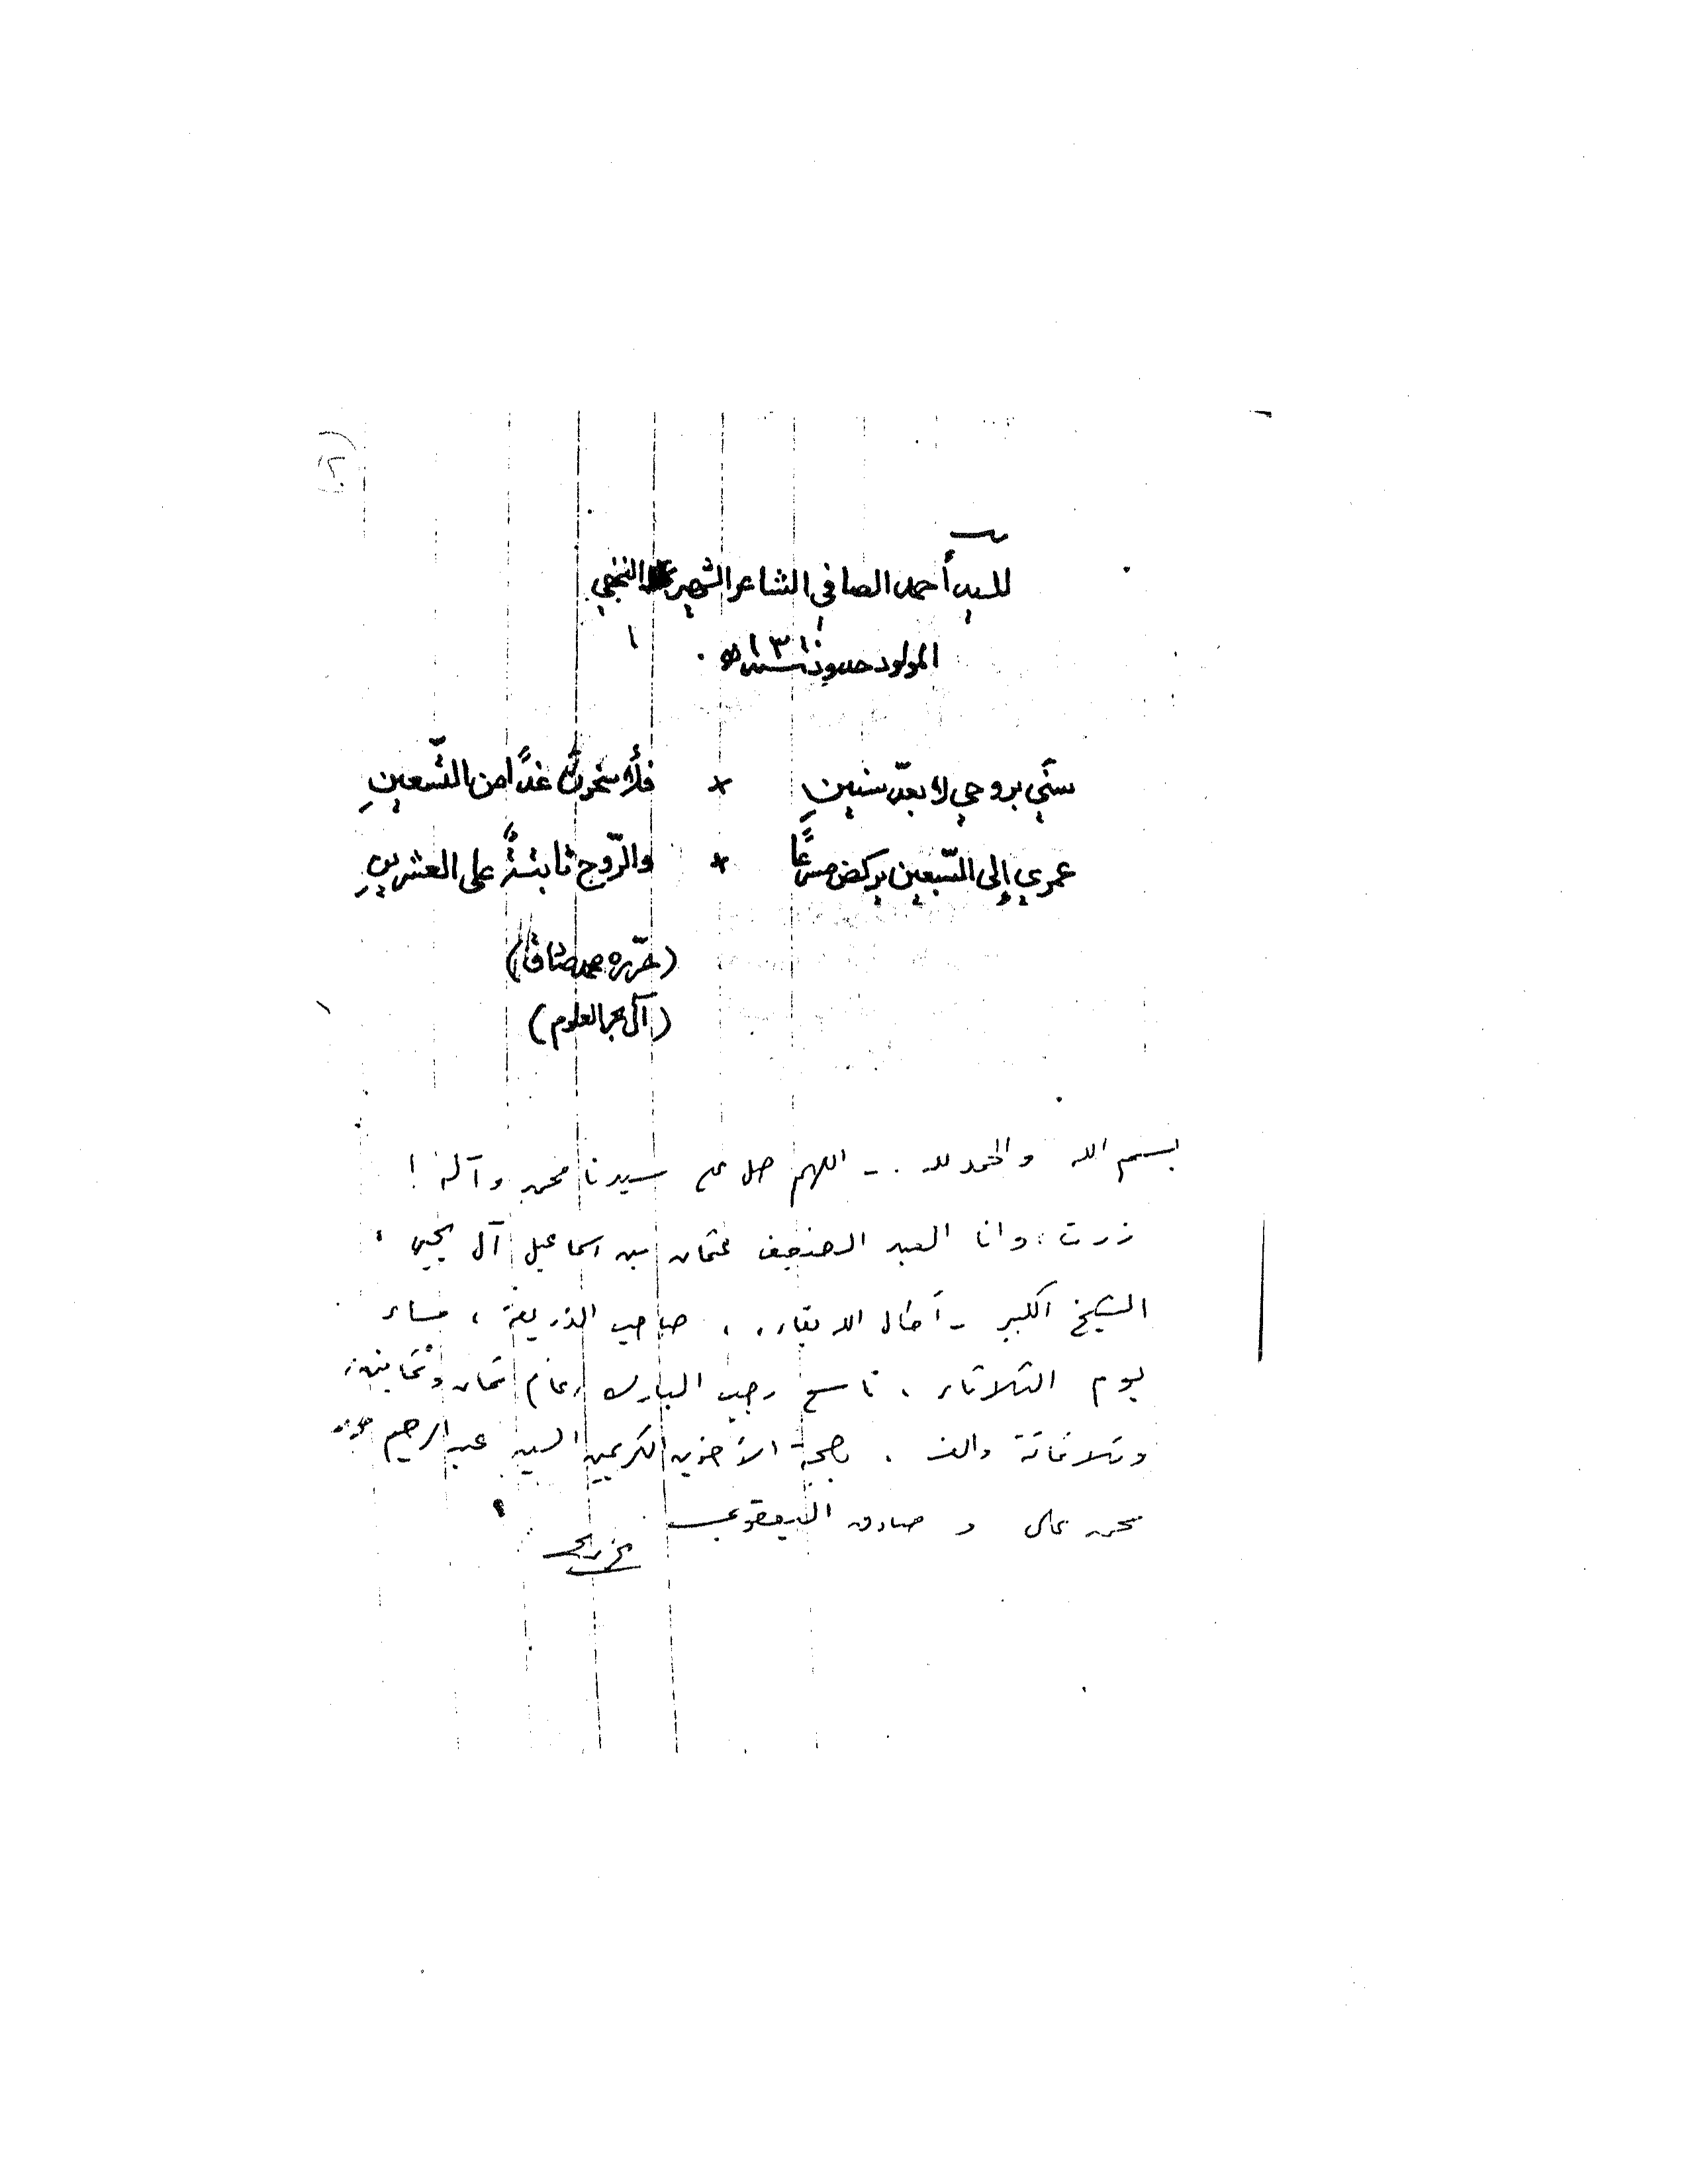 (٢)
للسيد أحمد الصافي الشاعر الشهير النجفي
المولود حدود سنة ١٣١٠ هـ .
سنّي بروحي لا بعدّ سنينِ × فلأسخرنّ غدًا من التّسعينِ
عمري إلى السّبعين يركض مسرعًا × والرّوح ثابتةٌ على العشرينِ
(حرّره محمد صادق)
(آل بحر العلوم)
بسم الله والحمد لله . - اللهم صل على سيدنا محمد وآله !
زرت ، وانا العبد الضعيف عثمان بن اسماعيل آل يحيى ،
الشيخ الكبير - أطال الله بقاءه ، صاحب الذريعة ، مساء
يوم الثلاثاء ، تاسع رجب المبارك ، عام ثمان وثمانين
وثلاثمائة والف . بصحبة الأخوين الكريمين السيد عبد الرحيم
محمد علي و صادق اليعقوبي